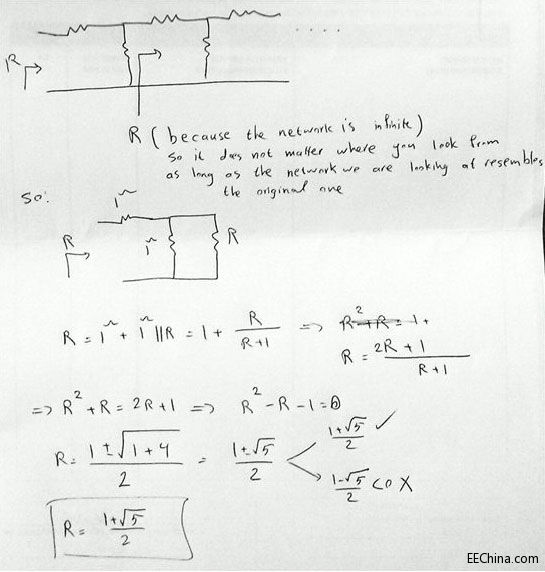 R
. . . .
R (because the network is infinite)
so it does not matter where you look from
as long as the network we are looking at resembles
the original one
So:
1Ω
R
1Ω
R
R = 1Ω + 1Ω || R = 1 + R/(R+1) => R² + R = 1 +
R = (2R + 1)/(R+1)
=> R² + R = 2R + 1 => R² - R - 1 = 0
R = (1 ± √(1+4))/2 = (1±√5)/2
(1+√5)/2 ✓
(1-√5)/2 <0 X
R = (1+√5)/2
EEChina.com